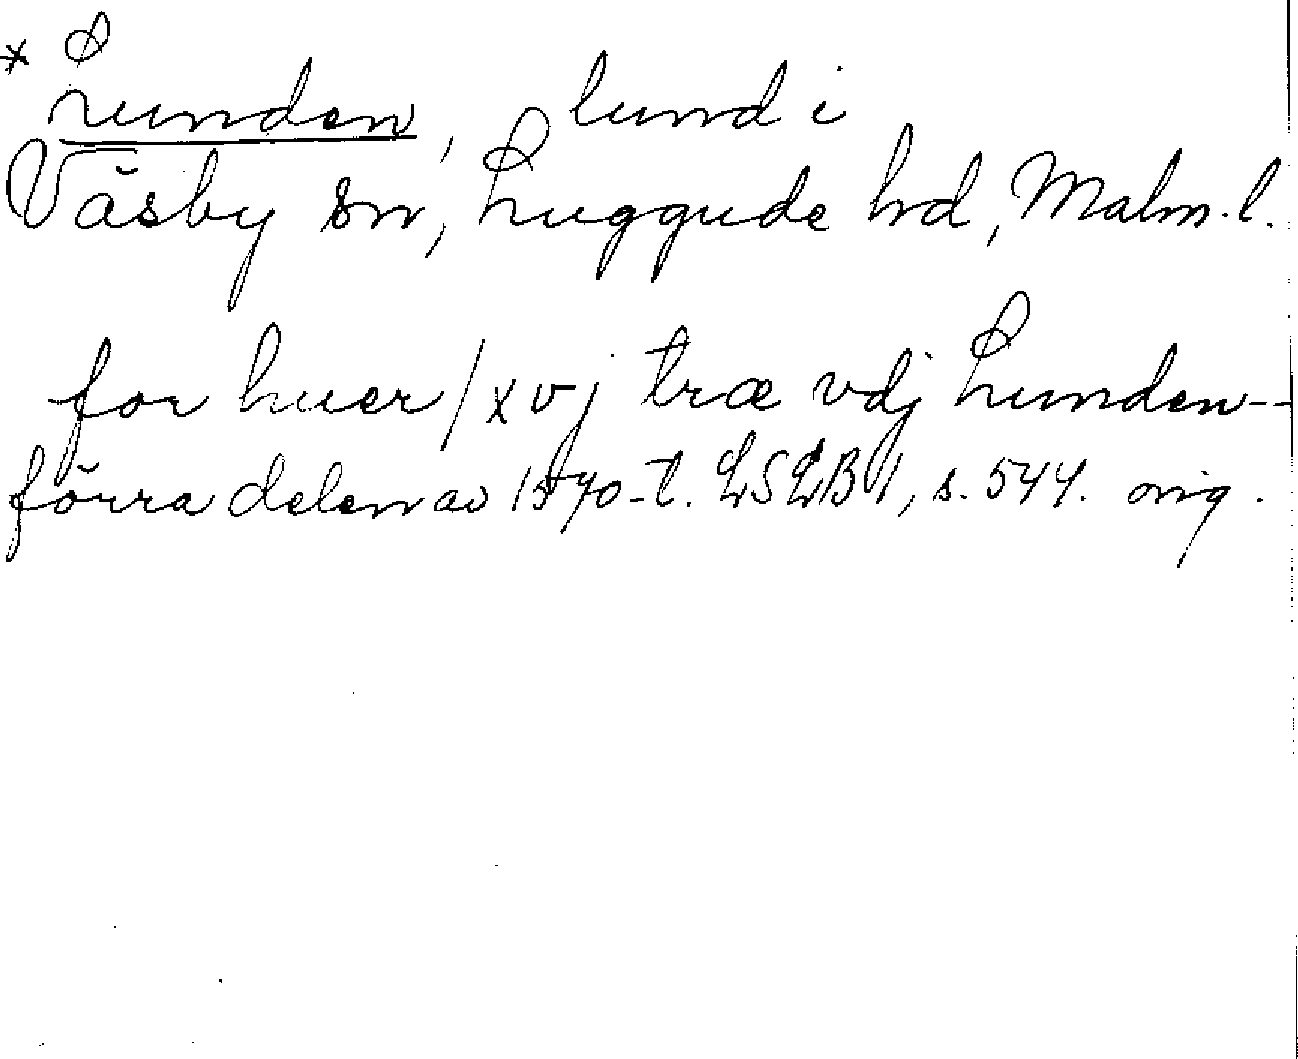 * Lunden, lund i
Väsby sn, Luggude hd, Malm.l.
for huer / xvj træ vdj Lunden--
förra delen av 1570-t. LSLB 1, s. 544. orig.